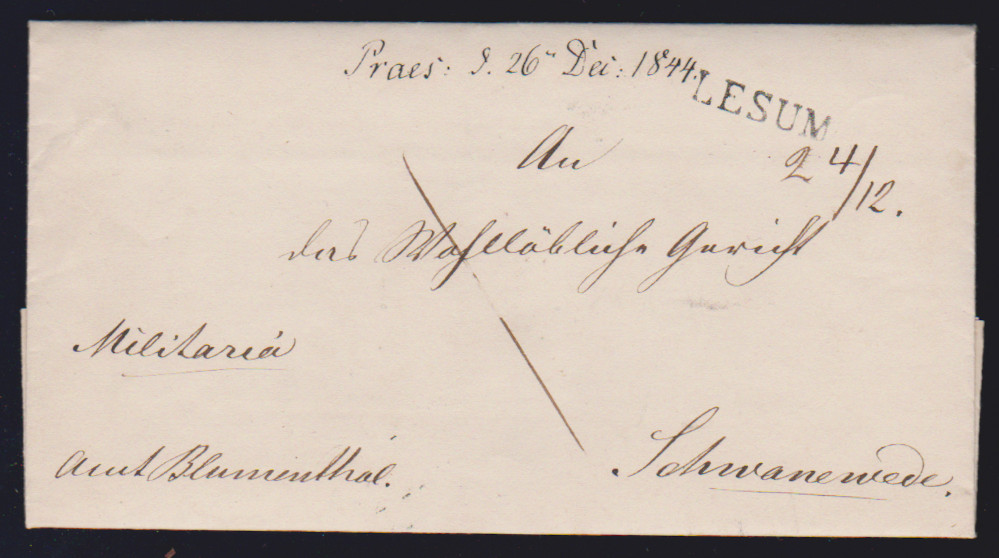 Praes: d. 26" Dec: 1844.
LESUM
24/12.
An
das Wohllöbliche Gericht
Militaria
Amt Blumenthal.
Schwanewede.